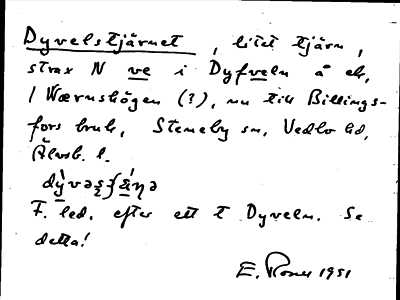 Dyvelstjärnet, litet tjärn,
strax N ve i Dyfveln å ek,
/ Wærnshögen (?), nu till Billings-
fors bruk, Steneby sn, Vedbo hd,
Älvsb. l.
F. led. efter ett t Dyveln. Se
detta!
E. 1951